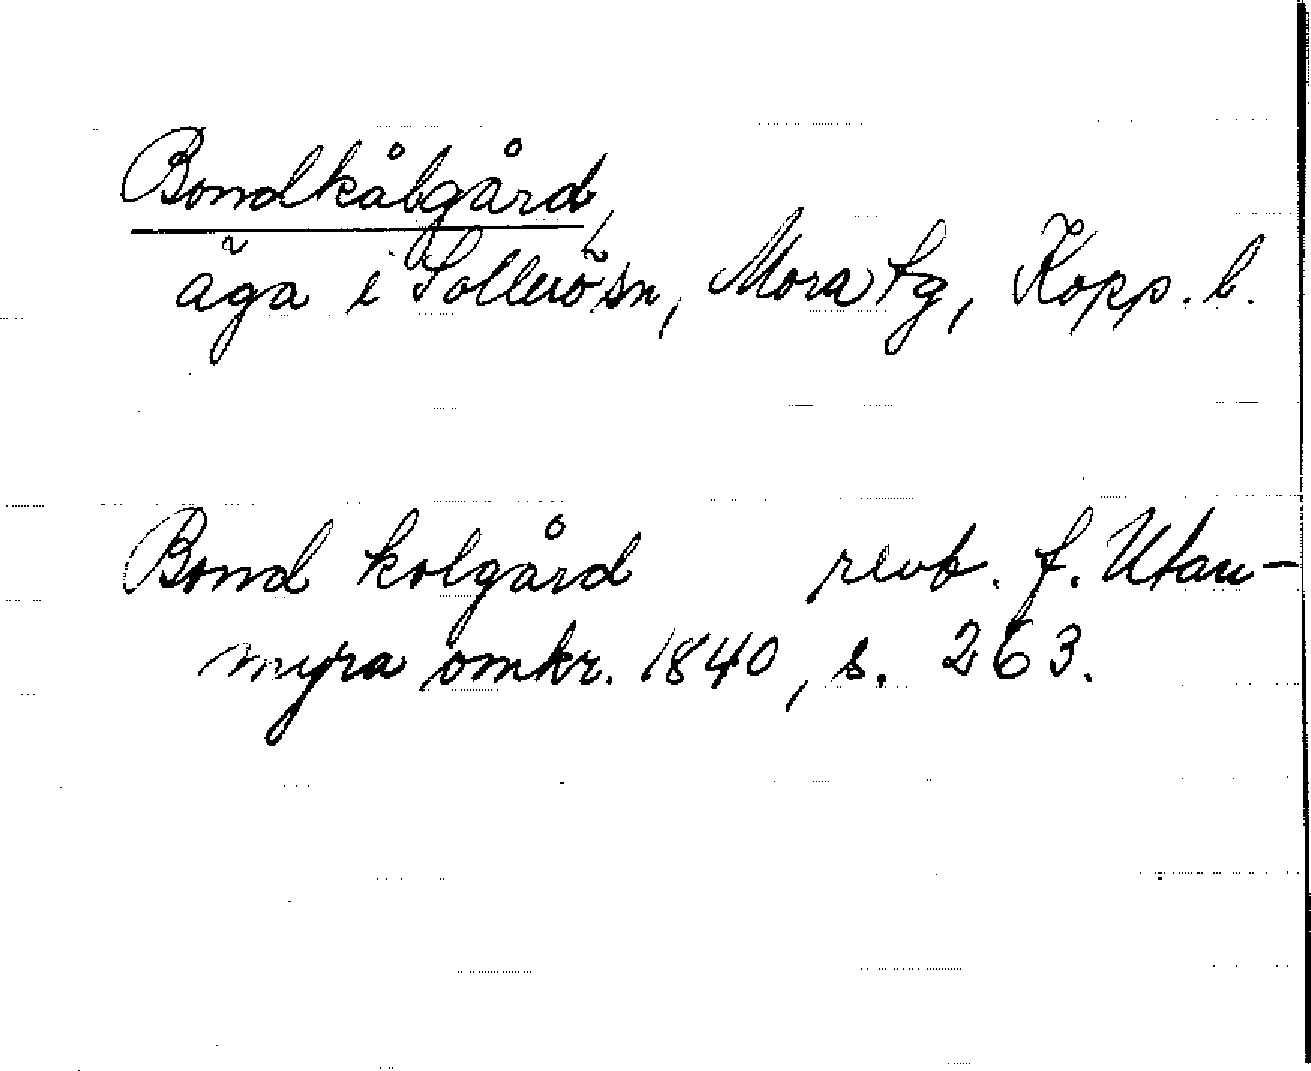 Bondkålgård,
äga i Sollerö sn, Mora tg, Kopp. l.
Bond kolgård revb. f. Utan-
myra omkr. 1840, s. 263.